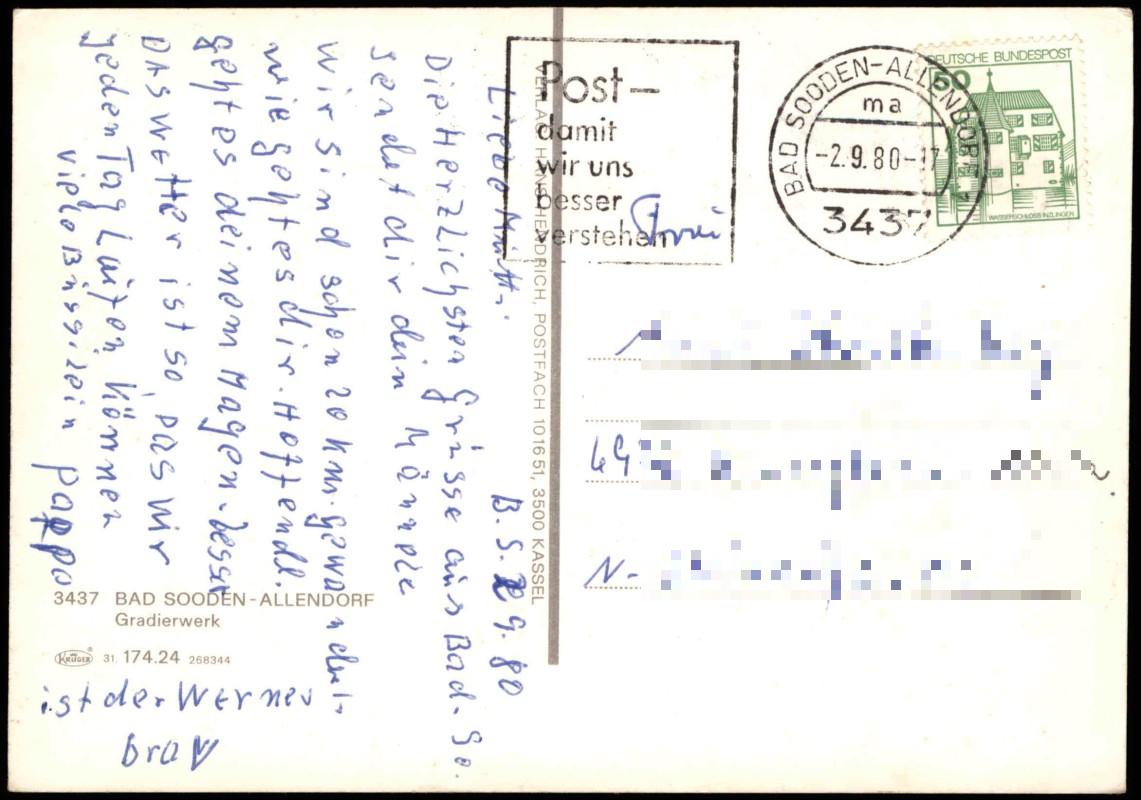 Post-
damit
wir uns
besser
verstehen
BAD SOODEN-ALLENDORF 1
ma
-2.9.80-17
3437
DEUTSCHE BUNDESPOST
50
WASSERSCHLOSS INZLINGEN
B.S. 2 9. 80
Liebe Mutti.
Die Herzlichsten Grüsse aus Bad. So.
sendet dir dein Männele
Wir sind schon 20 km. gewandert.
wie geht es dir. Hoffendl.
geht es deinem Magen besser
DAS Wetter ist so, DAS Wir
jeden Tag Laufen können
viele Bussilein Pappo
ist der Werner
brav
HENDRICH, POSTFACH 101651, 3500 KASSEL
3437 BAD SOODEN-ALLENDORF
Gradierwerk
KRÜGER 31. 174.24 268344
49
N-